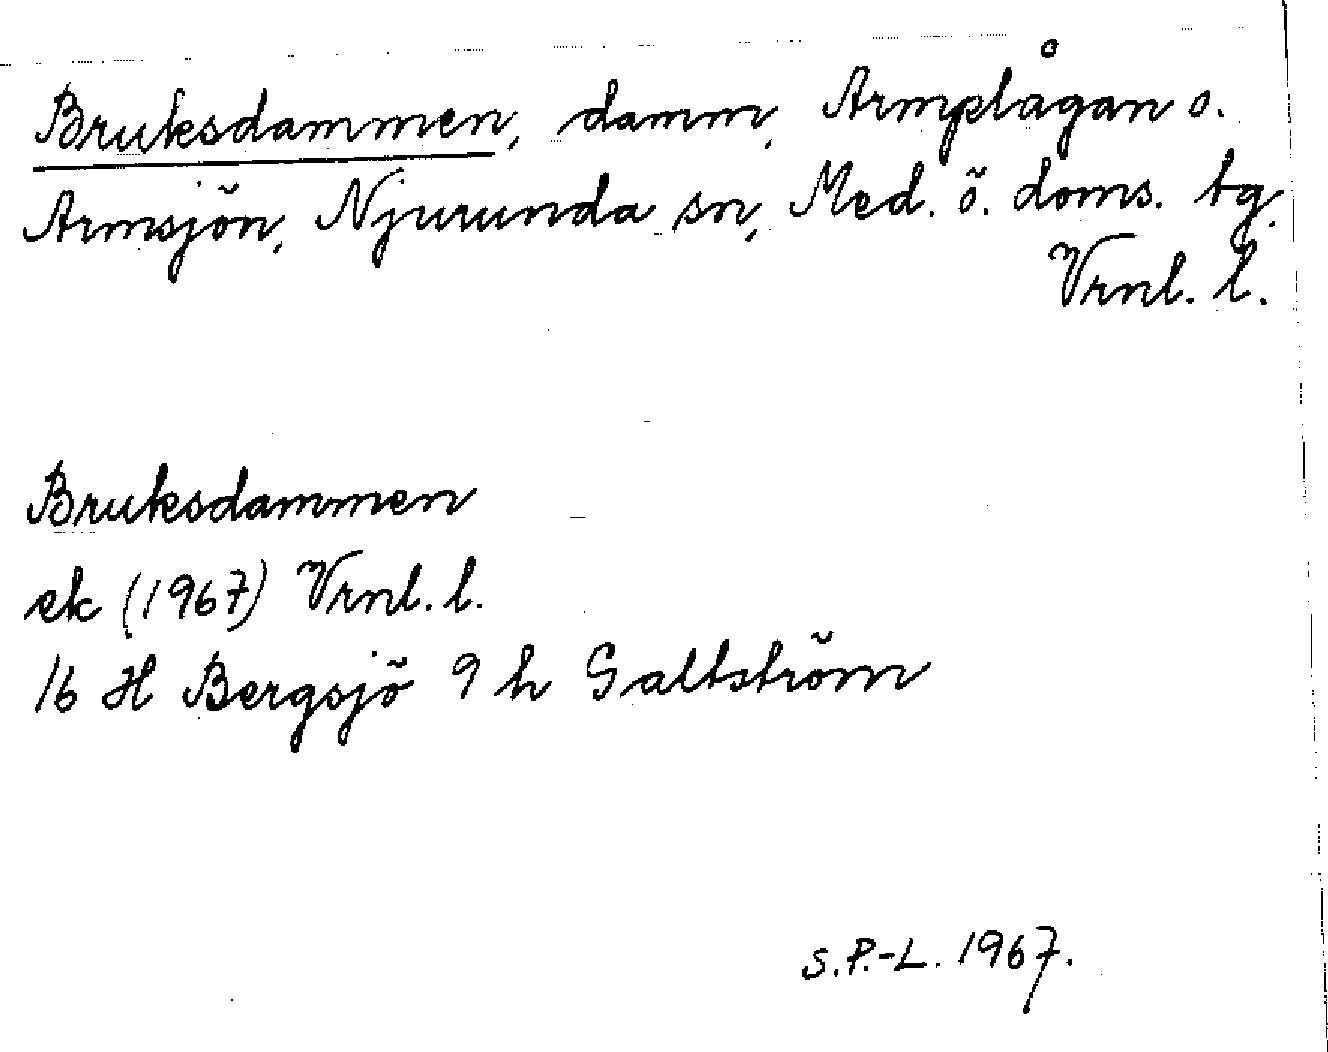 Bruksdammen, damm, Armplågan o.
Armsjön, Njurunda sn, Med. ö. doms. tg.
Vrnl. l.
Bruksdammen
ek (1967) Vrnl. l.
16 H Bergsjö 9 h Galtström
S.P.-L. 1967.